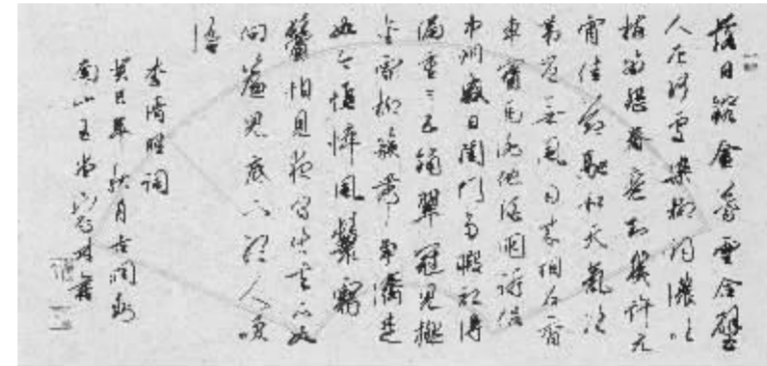 落日鎔金暮雲合璧
人在何處染柳烟濃吹
梅笛怨春意知幾許元
宵佳節融和天氣次
第豈無風雨來相召香
車寶馬謝他酒朋詩侶
中州盛日閨門多暇記得
偏重三五鋪翠冠兒撚
金雪柳簇帶爭濟楚
如今憔悴風鬟霜
鬢怕見夜間出去不如
向簾兒底下聽人笑
語
李清照詞
癸巳年秋月古
南山玉堂